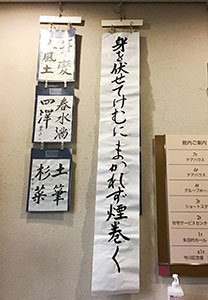 身を伏せてけむにまかれず煙巻く
春水満
四澤
土筆
杉菜
風土
館内ご案内
7F
ケアハウス
6F
ケアハウス
5F
グループホーム
ショートステ
在宅サービスセンター
1F
多目的ホール
B1F
今川記念館